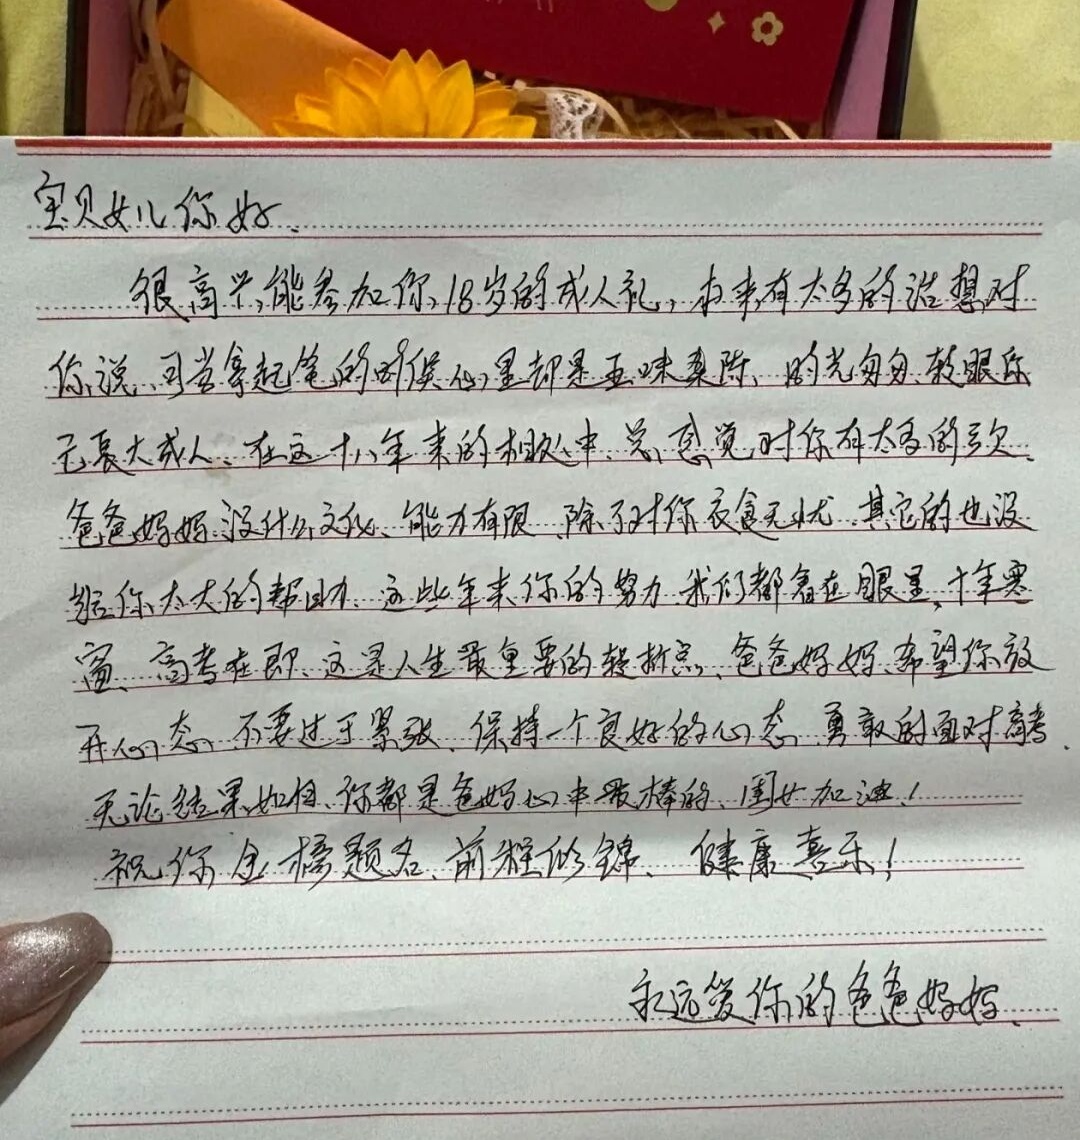 宝贝女儿你好.
很高兴能参加你18岁的成人礼,本来有太多的话想对
你说、可当拿起笔的时候心里却是五味杂陈、时光匆匆、转眼你
已长大成人、在这十八年来的相处中、总感觉对你有太多的亏欠.
爸爸妈妈没什么文化、能力有限、除了对你衣食无忧、其它的也没
给你太大的帮助、这些年来你的努力、我们都看在眼里,十年寒
窗、高考在即、这是人生最重要的转折点、爸爸妈妈、希望你放
开心态、不要过于紧张、保持一个良好的心态、勇敢的面对高考.
无论结果如何、你都是爸妈心中最棒的、闺女加油!
祝你金榜题名、前程似锦、健康喜乐!
永远爱你的爸爸妈妈.